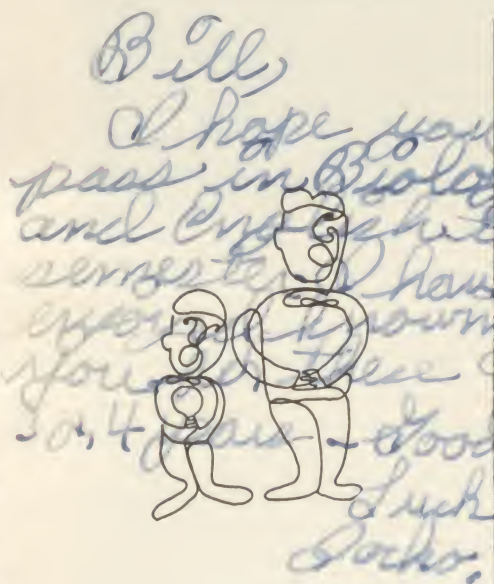 Bill,
I hope you
pass in Biolog
and English
semester I have
enjoyed known
you these
3 or 4 years - Good
Luck
Jocko,